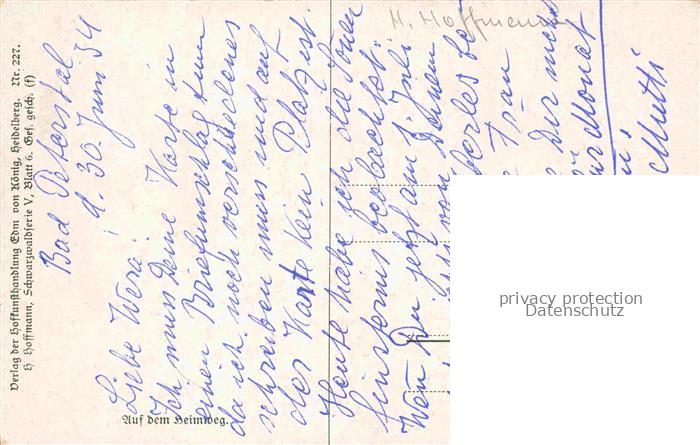 Bad Peterstal
d. 30. Juni 54
Liebe Wera!
Ich muss Deine Karte in
einen Briefumschlag tun
da ich noch verschiedenes
schreiben muss und auf
der Karte kein Platz ist.
Heute habe ich die Sonnen
finsternis beobachtet.
Wen Du jetzt am 1. Juli
von Deinem
Frau
Dir
Monat
Mutti
H. Hoffmann
Verlag der Hofkunsthandlung Edm von König, Heidelberg. Nr. 227.
H Hoffmann, Schwarzwaldserie V, Blatt 6. Ges. gesch. (f)
Auf dem Heimweg.
privacy protection
Datenschutz